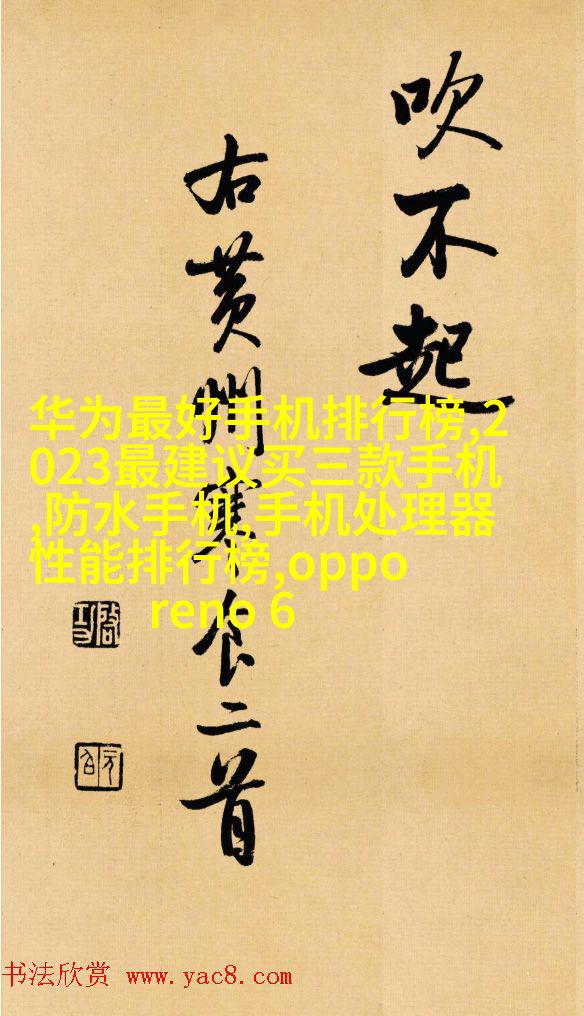 吹不起
右黄州寒食二首
啓功
元白
华为最好手机排行榜,2
023最建议买三款手机
,防水手机,手机处理器
性能排行榜,oppo
reno 6
书法欣赏 www.yac8.com